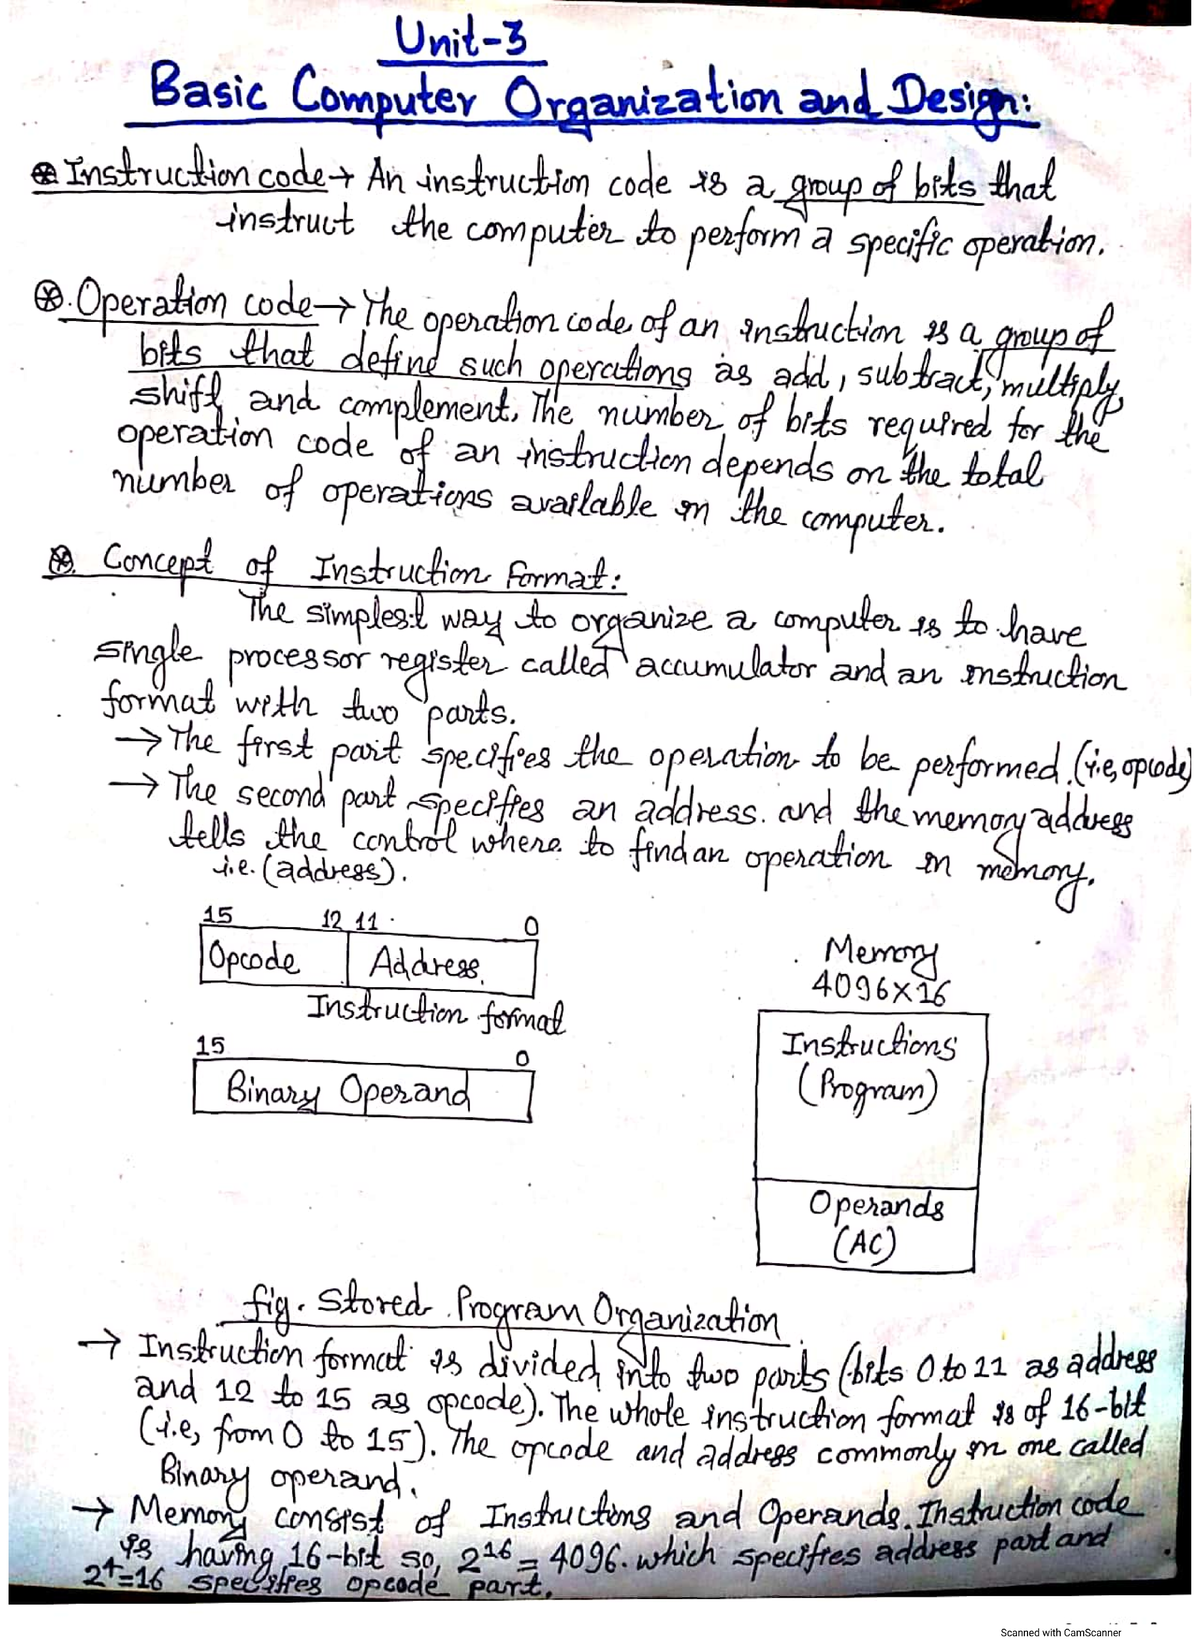 Unit-3
Basic Computer Organization and Design:
⊛ Instruction code → An instruction code is a group of bits that
instruct the computer to perform a specific operation.
⊛. Operation code → The operation code of an instruction is a group of
bits that define such operations as add, subtract, multiply,
shift and complement. The number of bits required for the
operation code of an instruction depends on the total
number of operations available in the computer.
⊛. Concept of Instruction Format:
The simplest way to organize a computer is to have
single processor register called accumulator and an instruction
format with two parts.
→ The first part specifies the operation to be performed. (i.e, opcode)
→ The second part specifies an address. and the memory address
tells the control where to find an operation in memory.
i.e. (address).
15 12 11 0
Opcode Address
Instruction format
15 0
Binary Operand
Memory
4096×16
Instructions
(Program)
Operands
(AC)
fig. Stored Program Organization
→ Instruction format is divided into two parts (bits 0 to 11 as address
and 12 to 15 as opcode). The whole instruction format is of 16-bit
(i.e, from 0 to 15). The opcode and address commonly in one called
Binary operand.
→ Memory consist of Instructions and Operands. Instruction code
is having 16-bit so, 2^16 = 4096. which specifies address part and
2^4=16 specifies opcode part.
Scanned with CamScanner